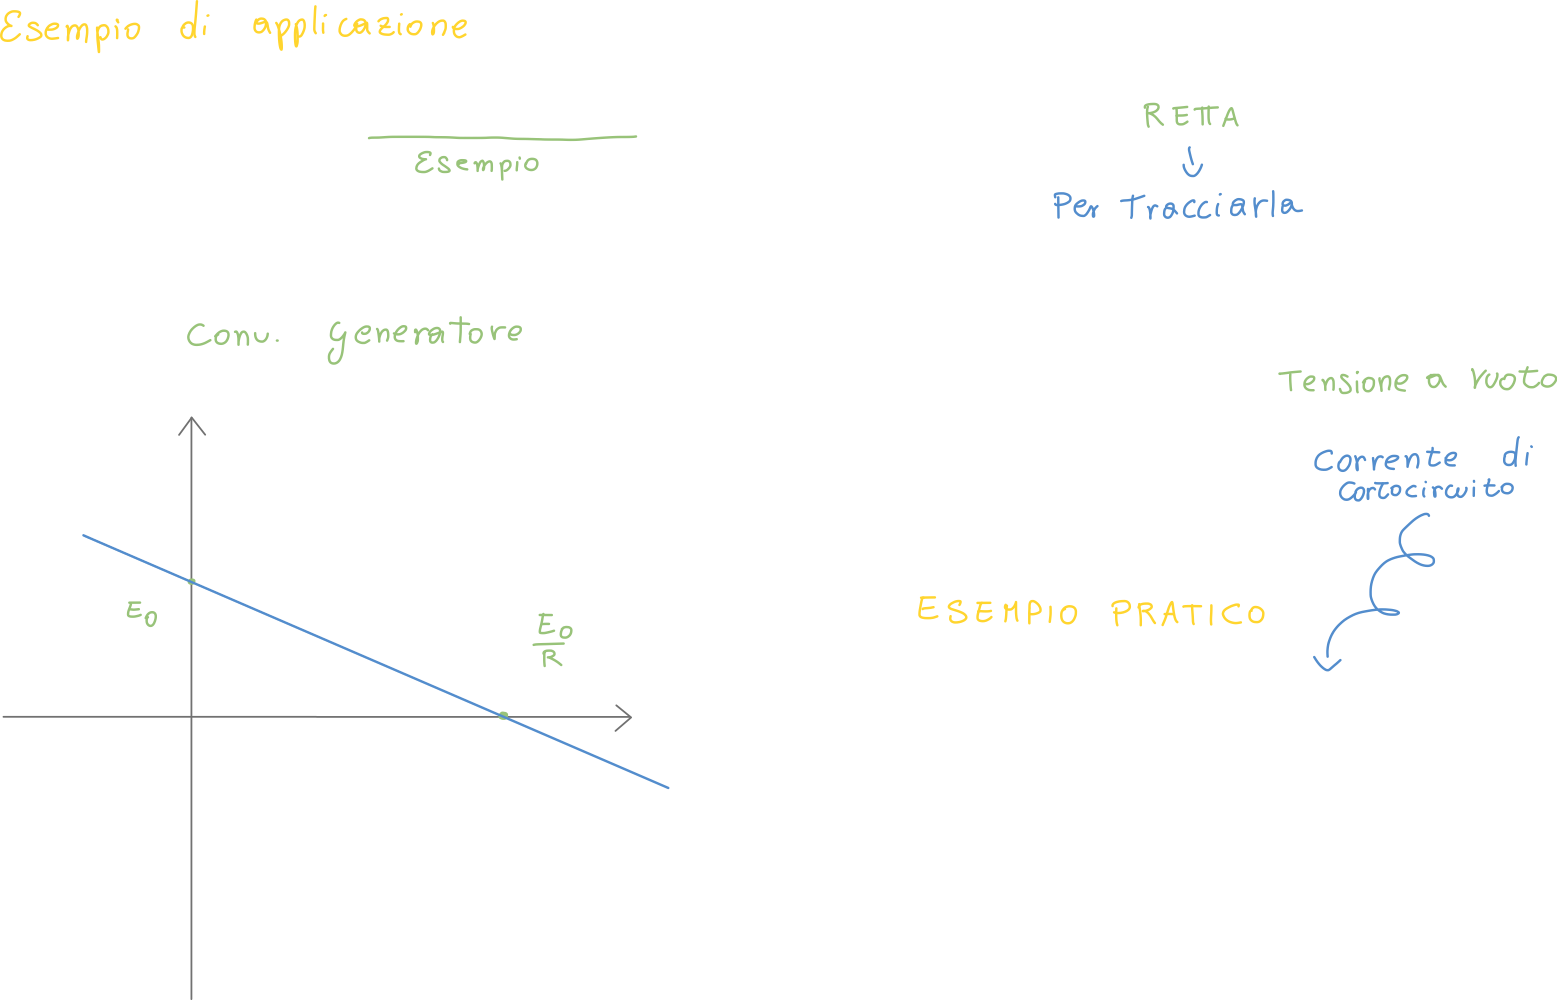 Esempio di applicazione
Esempio
RETTA
Per Tracciarla
Conv. generatore
Tensione a vuoto
Corrente di
Cortocircuito
E0
E0
R
ESEMPIO PRATICO